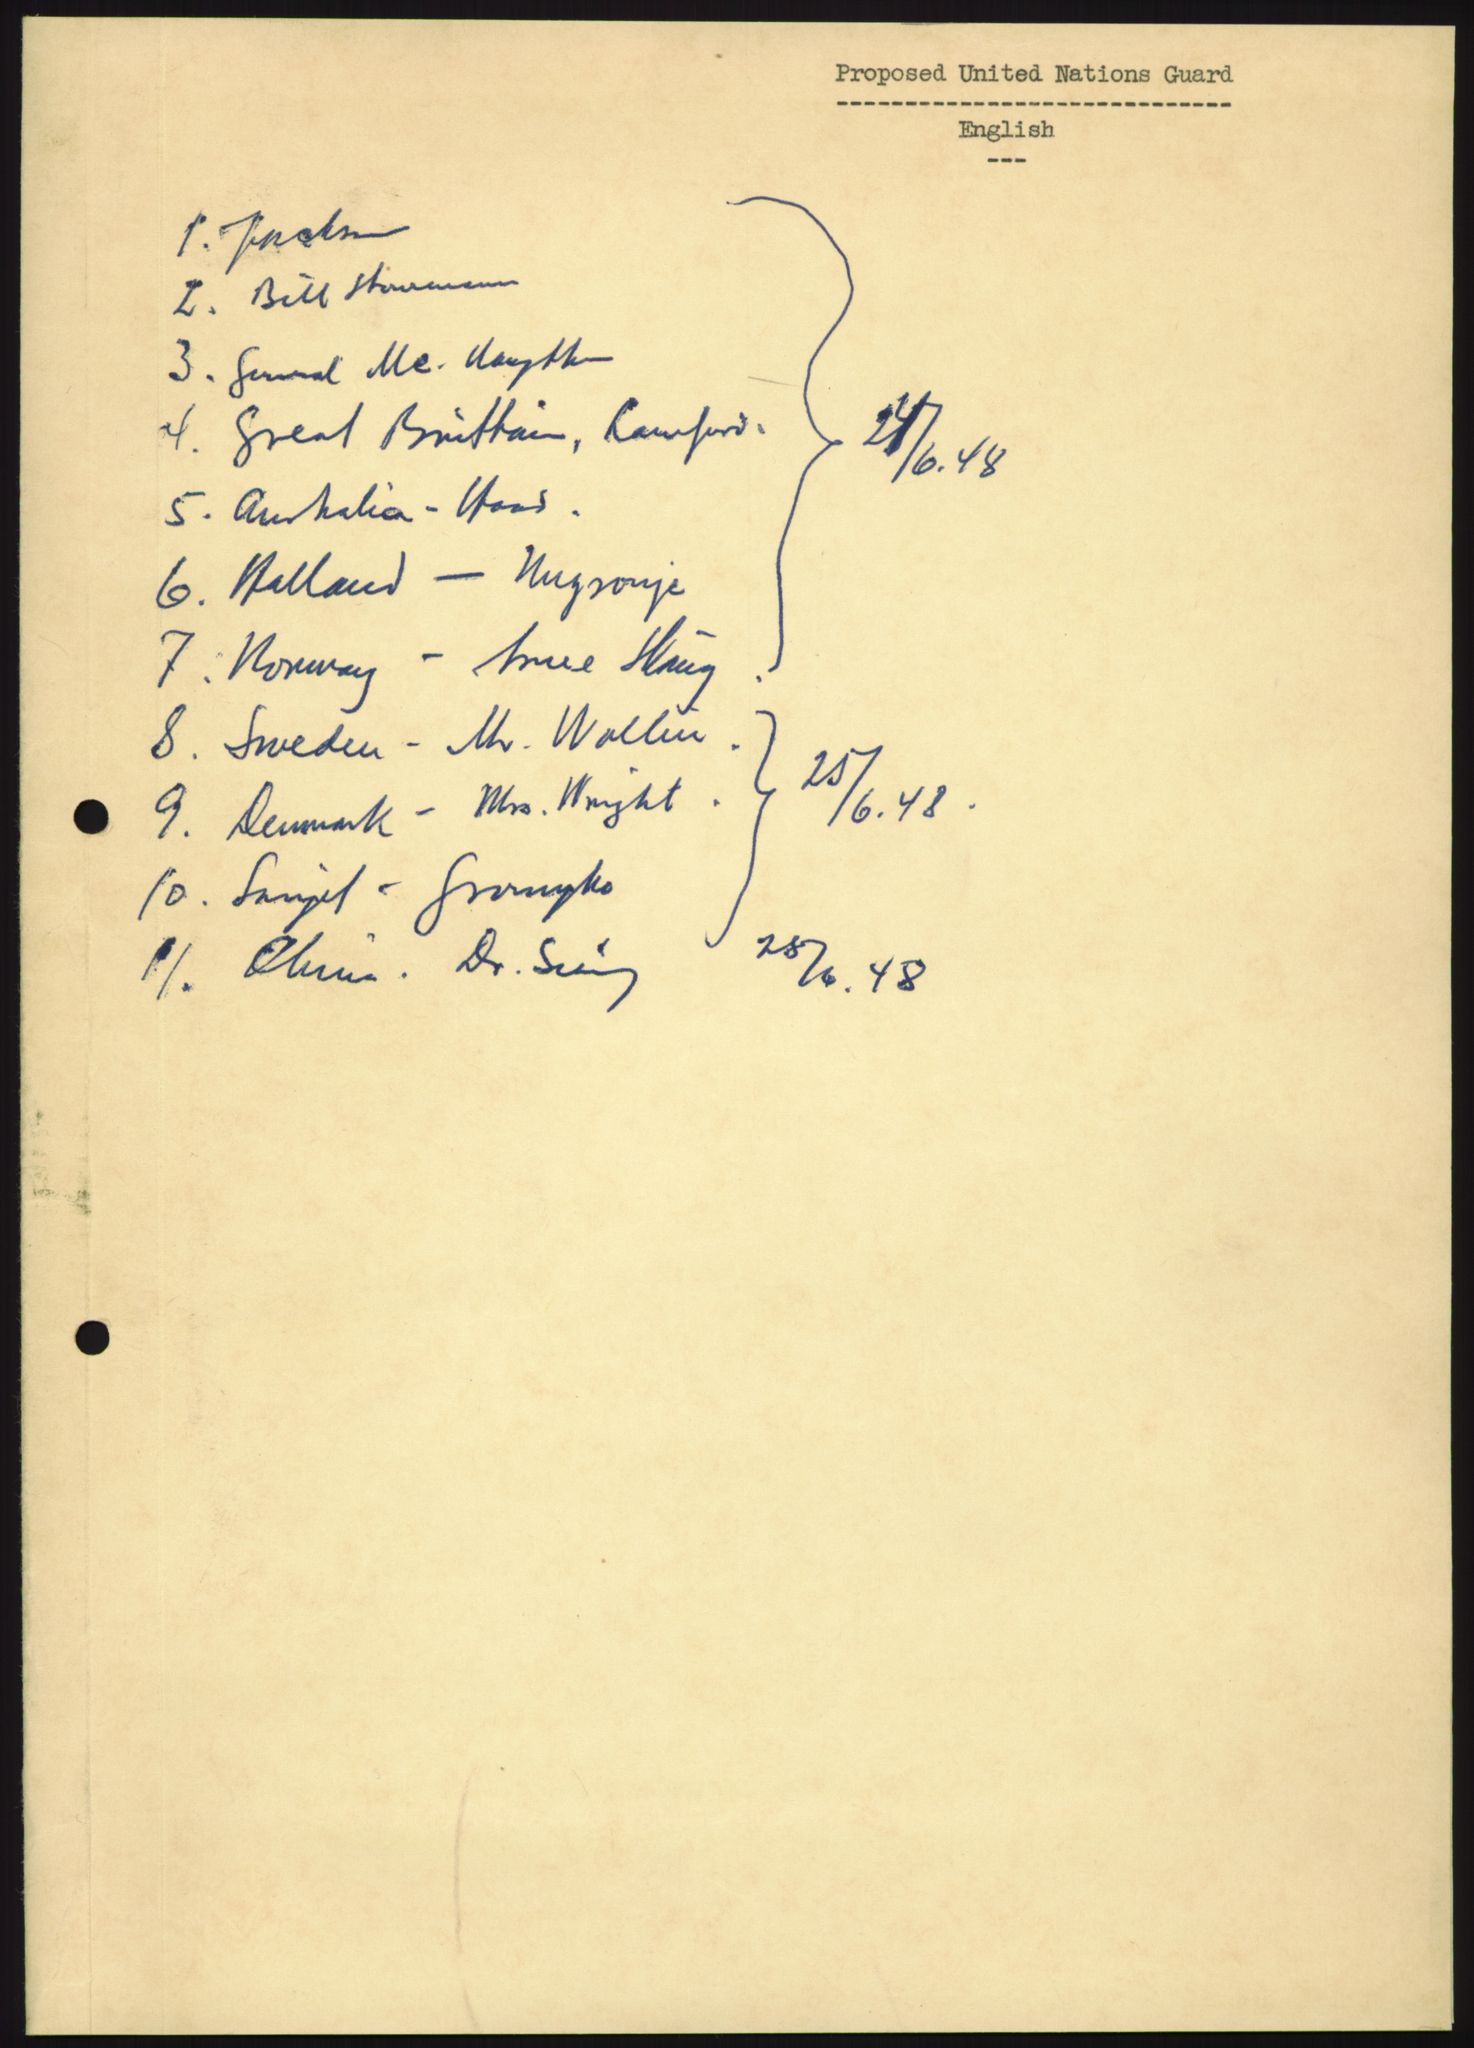 Proposed United Nations Guard
-----------------------------
English
---
1. Jackson
2. Bill
3. General Mc. Naughton
4. Great Brittain,
5. Australia - Hood.
6. Holland —
7. Norway - Arne
24/6.48
8. Sweden - Mr. Wollin.
9. Denmark - Mrs. Wright.
10. Sovjet - Gromyko
25/6.48.
11. China. Dr.
28/6.48